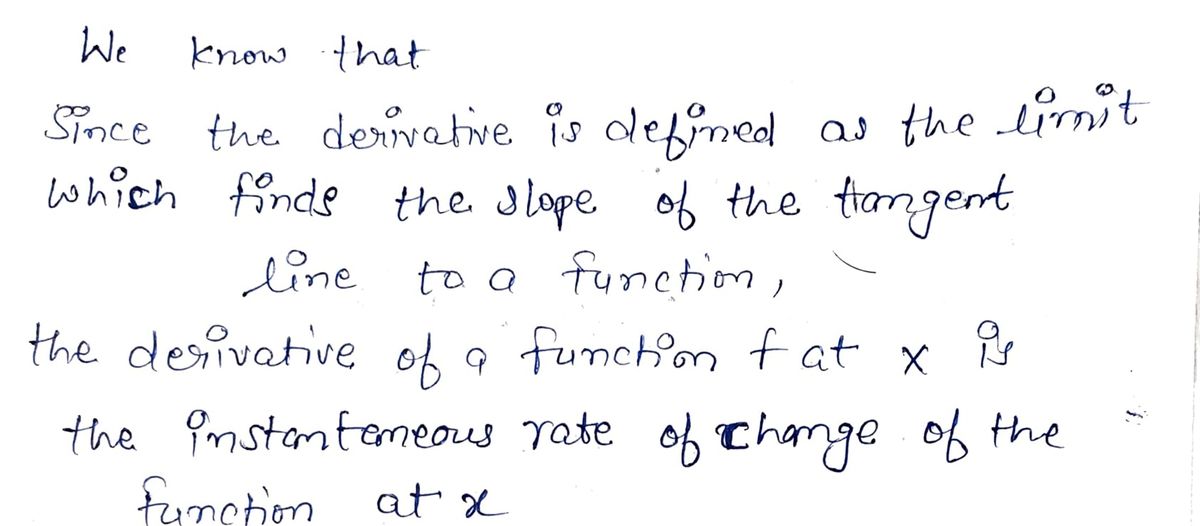 We know that
Since the derivative is defined as the limit
which finds the slope of the tangent
line to a function,
the derivative of a function f at x is
the instantaneous rate of change of the
function at x